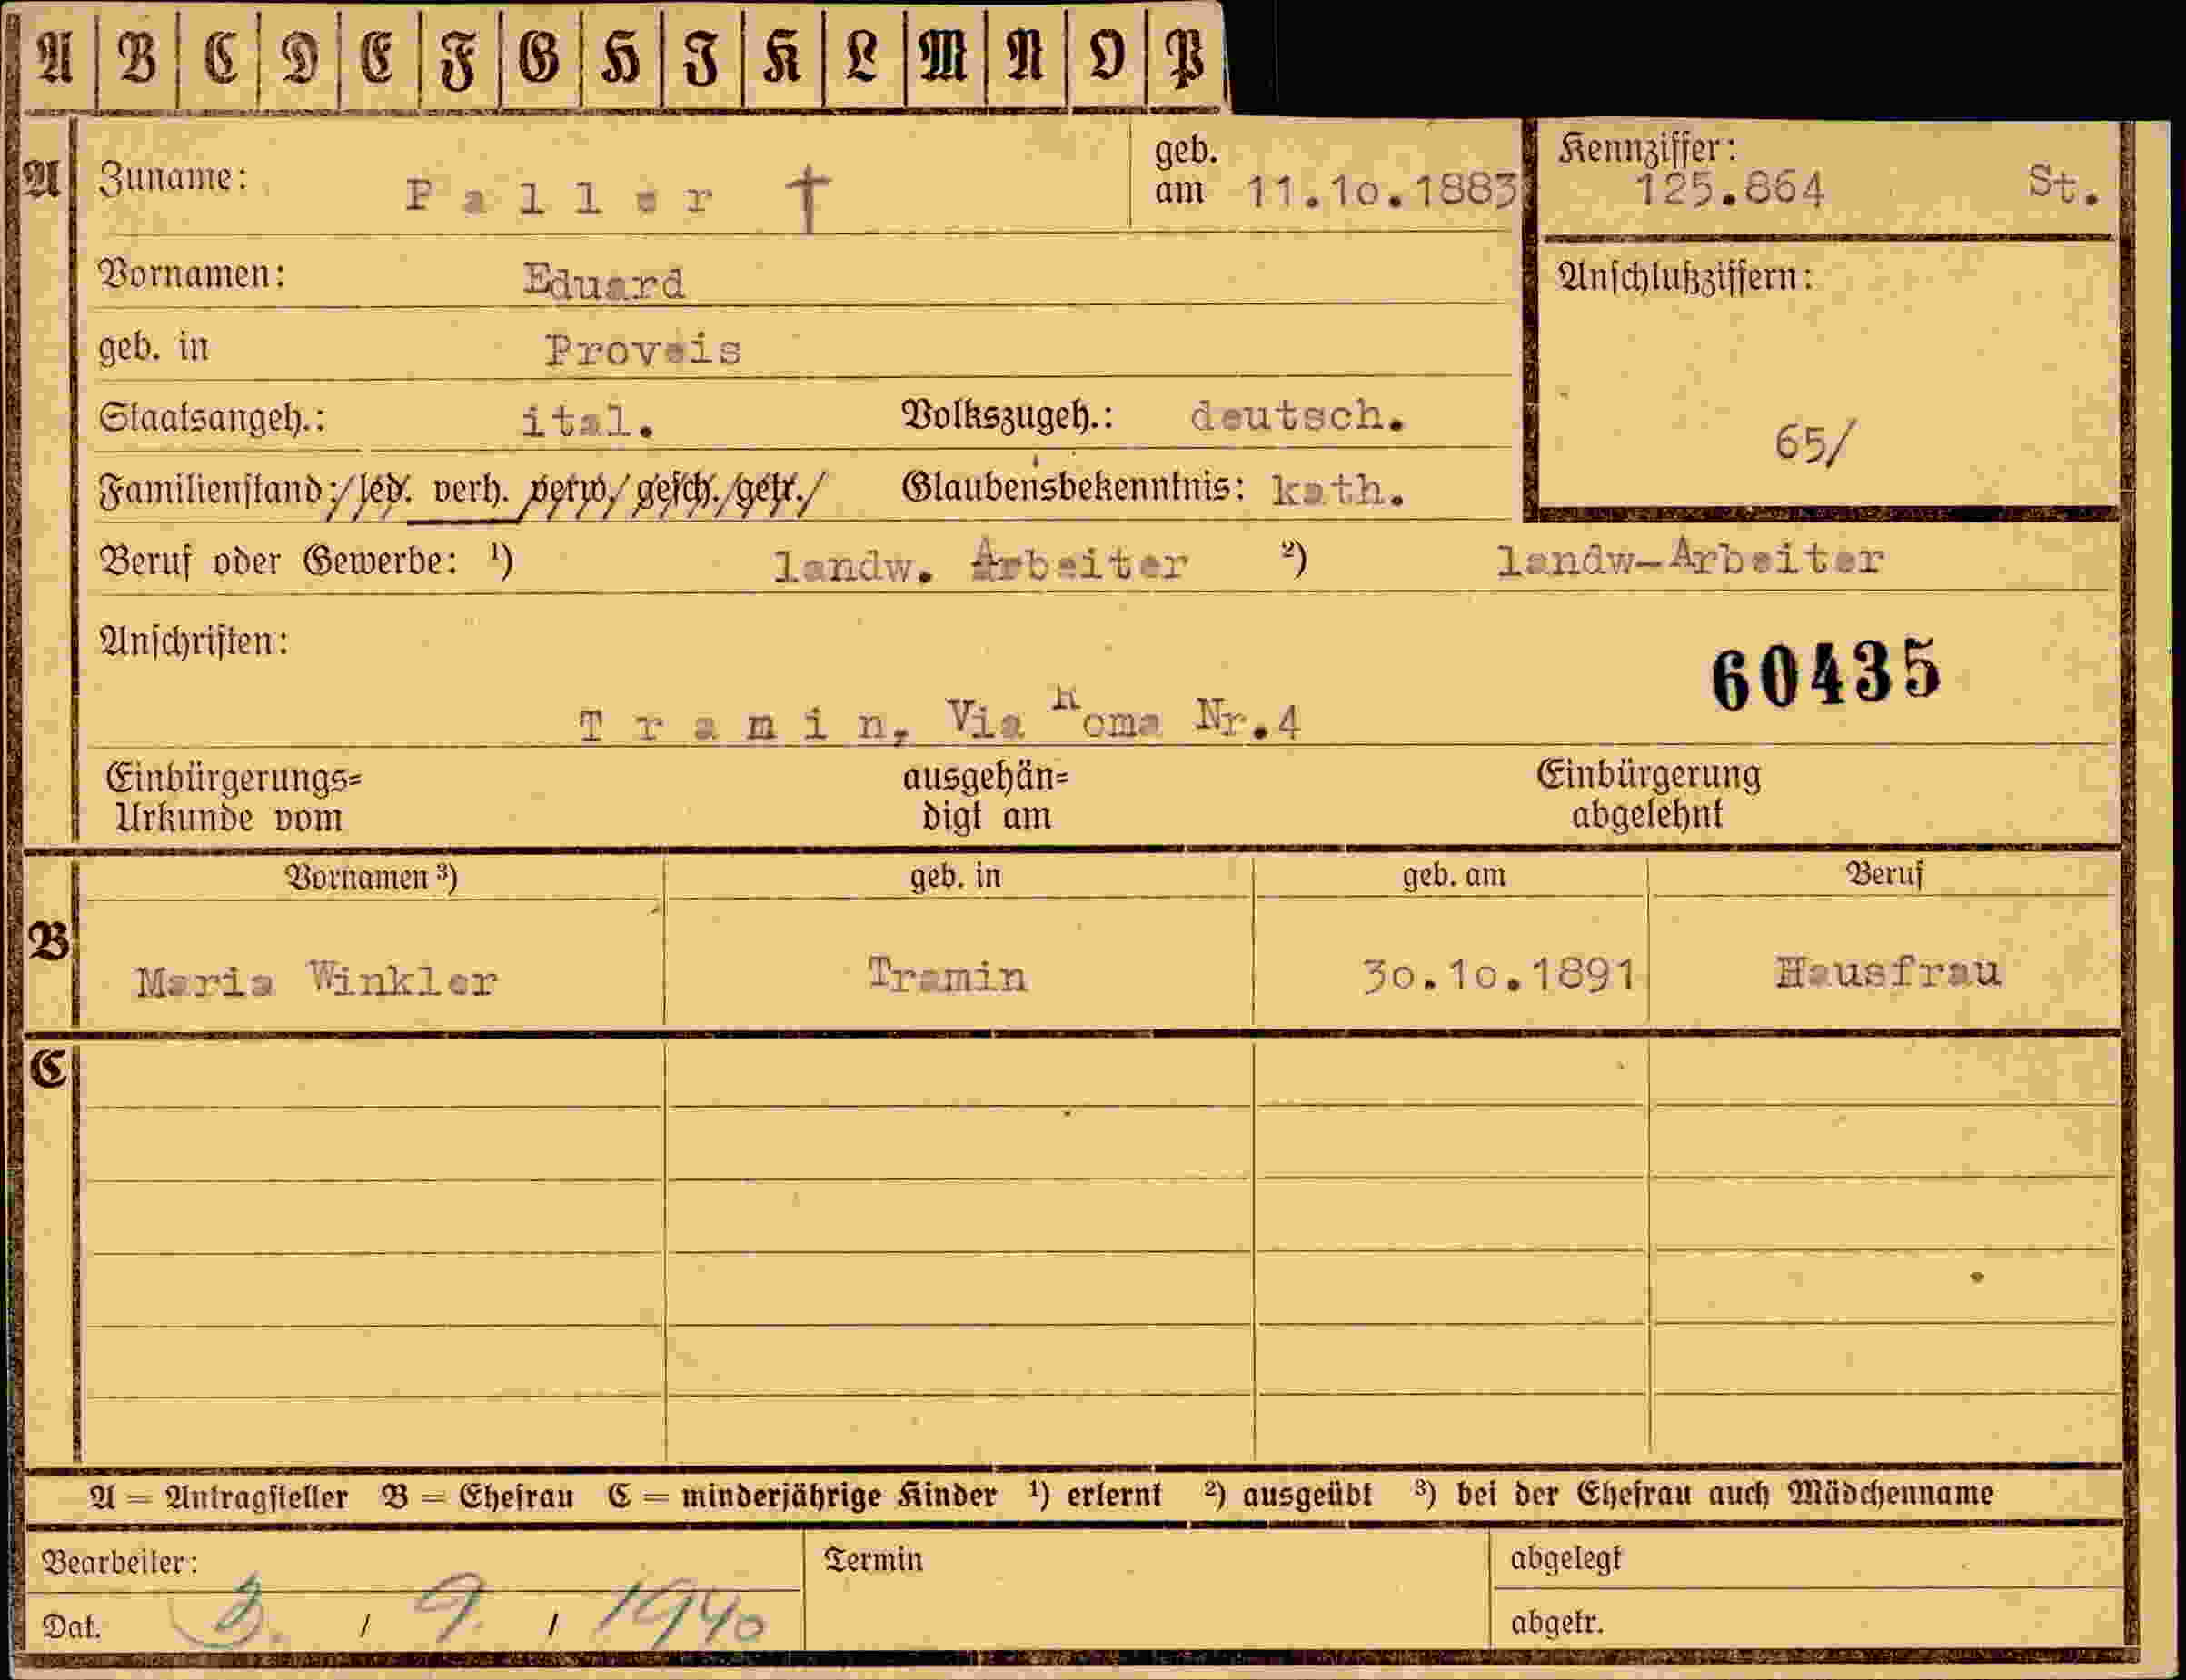 A B C D E F G H I K L M N O P
A Zuname: Paller † geb. am 11.10.1883 Kennziffer: 125.864 St.
Vornamen: Eduard Anschlußziffern:
geb. in Proveis
Staatsangeh.: ital. Volkszugeh.: deutsch. 65/
Familienstand: led. verh. verw. gesch. getr. Glaubensbekenntnis: kath.
Beruf oder Gewerbe: ¹) landw. Arbeiter ²) landw-Arbeiter
Anschriften: 60435
Tramin, Via Roma Nr.4
Einbürgerungs= ausgehän= Einbürgerung
Urkunde vom digt am abgelehnt
Vornamen ³) geb. in geb. am Beruf
B Maria Winkler Tramin 30.10.1891 Hausfrau
C
A = Antragsteller B = Ehefrau C = minderjährige Kinder ¹) erlernt ²) ausgeübt ³) bei der Ehefrau auch Mädchenname
Bearbeiter: Termin abgelegt
Dat. 3. / 9. / 1940 abgetr.